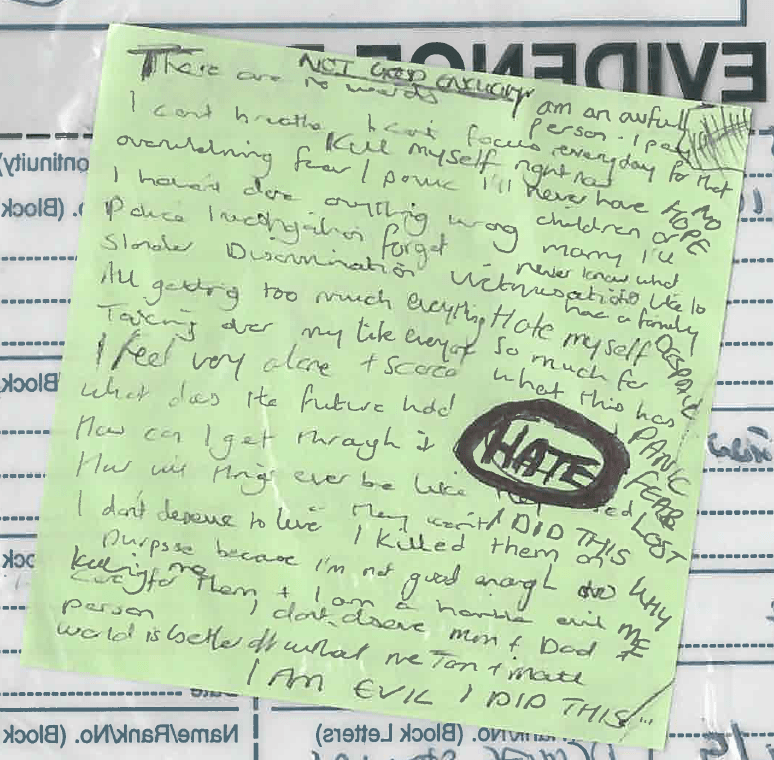 EVIDENCE
There are no words
NOT GOOD ENOUGH
I am an awful
person. I pay
everyday for that
I can't breathe I can't focus
overwhelming fear / panic
Kill myself right now
I'll never have
children or
NO
HOPE
I haven't done anything wrong
marry I'll
never know what
Police Investigation forget
Slander Discrimination Victimisation
like to
have a family
All getting too much everything
Hate myself
DESPAIR
Taking over my life everyday
so much for
what this has
I feel very alone + scared
What does the future hold
HATE
PANIC
FEAR
LOST
How can I get through it
How will things ever be like
I DID THIS
WHY
ME
I don't deserve to live
I killed them on
purpose because I'm not good enough
to
care for them + I am a horrible evil
person
I don't deserve mum + Dad
world is better off without me
I AM EVIL I DID THIS
(Block
Name/Rank/No. (Block
No. (Block Letters)